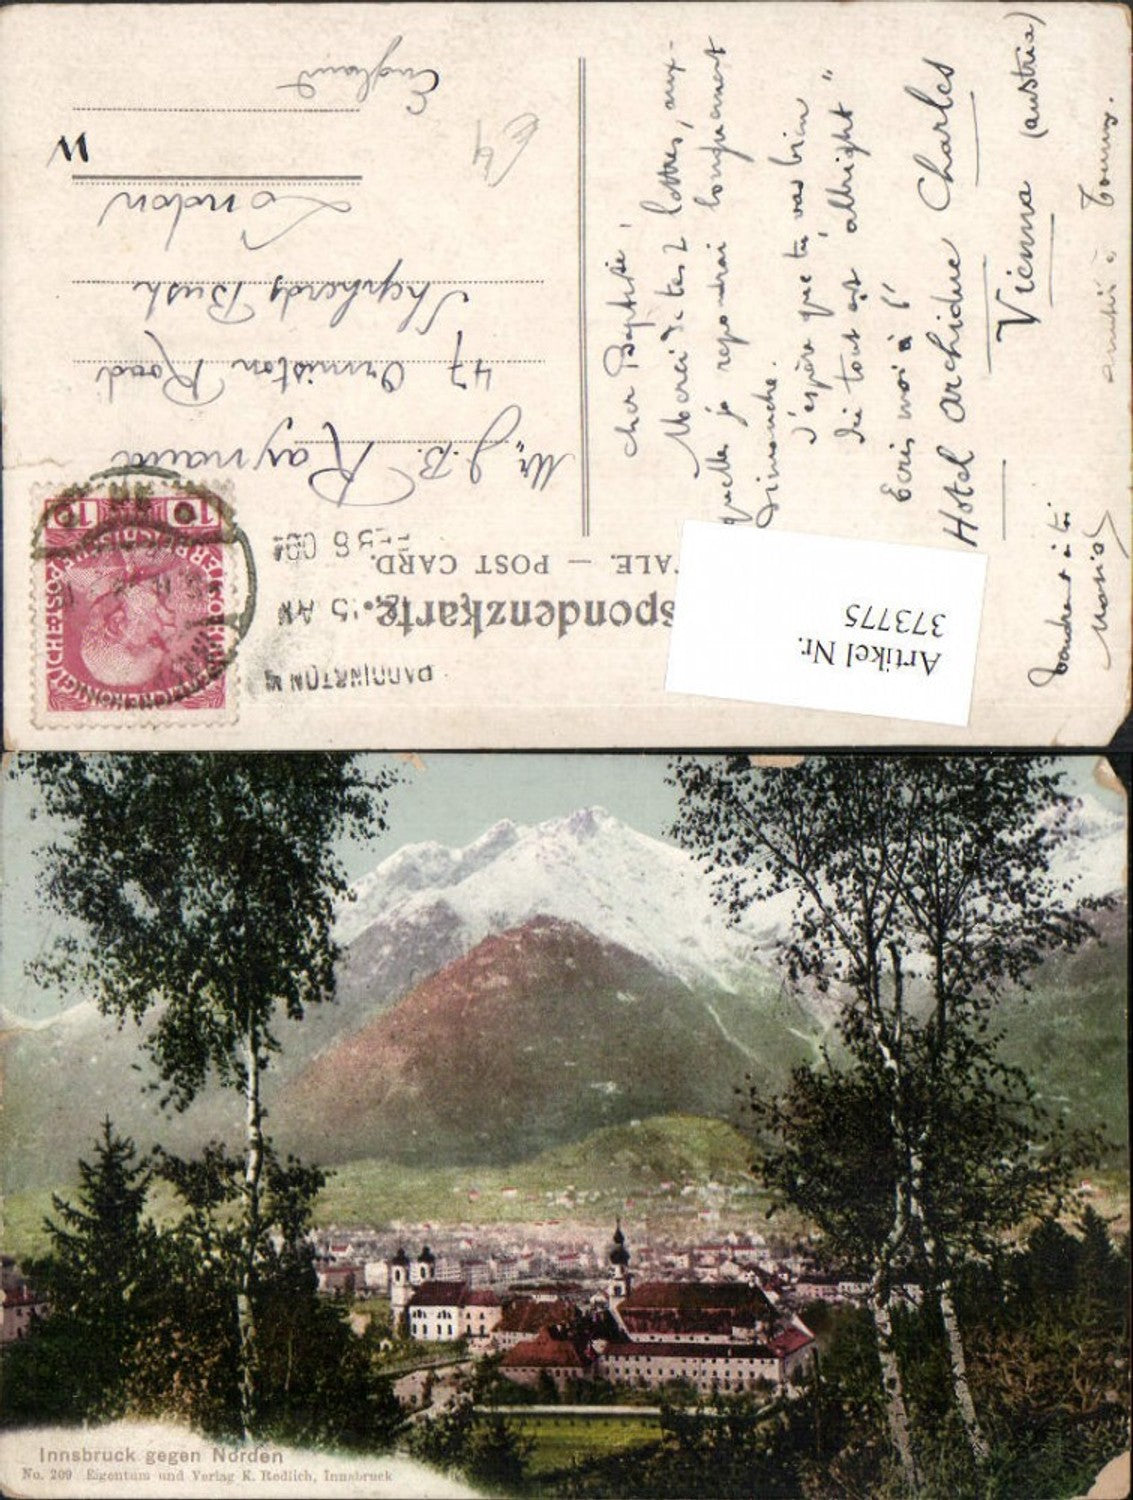 spondenzkarte.
TALE. — POST CARD.
PADDINGTON W
15 AM
10 10
Mr. J. B. Raynaud
47 Ormiston Road
Shepherds Bush
London
W
England
Cher Baptiste,
Merci de tes 2 lettres, aux-
quelles je repondrai longuement
Dimanche.
J'espère que tu vas bien
que tout est "allright"
Ecris moi à l'
Hotel Archiduc Charles
Vienna (Austria)
amitiés à Tommy.
Tendrement à toi
Artikel Nr.
373775
Innsbruck gegen Norden
No. 209 Eigentum und Verlag K. Redlich, Innsbruck